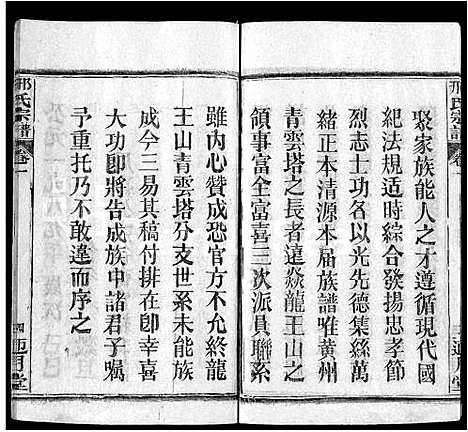 邢氏宗譜
卷一
聚家族能人之才遵循現代國
紀法規適时綜合發揚忠孝節
烈志士功名以光先德集絲萬
緒正本清源本届族譜唯黄州
青雲塔之長者違㷋龍王山之
領事富全富喜三次派員聯系
雖内心贊成恐官方不允龍
王山青雲塔分支世系未能族
成今三易其稿付排在即幸喜
大功即將告成族中諸君子嘱
予重托乃不敢違而序之
邢氏宗譜
卷一
四